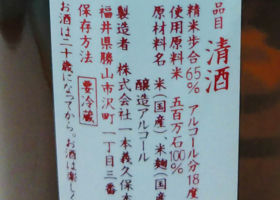 品目 清酒
精米歩合65% アルコール分18度
使用原料米 五百万石100%
原材料名 米(国産)、米麹(国産
醸造アルコール
製造者 株式会社一本義久保本
福井県勝山市沢町一丁目三番
保存方法 要冷蔵
お酒は二十歳になってから。お酒は楽しく